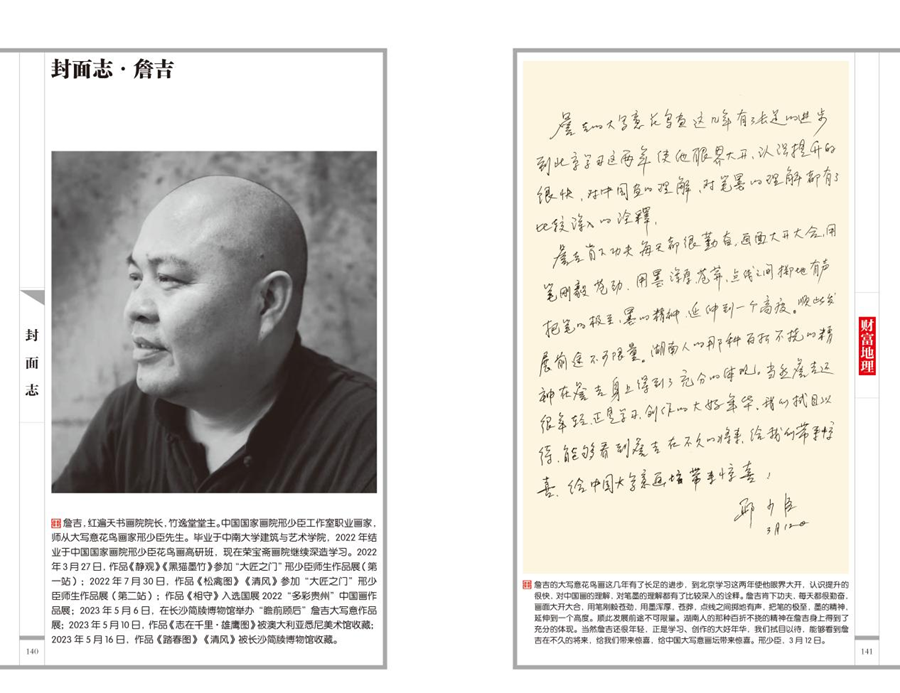 封面志·詹吉
封
面
志
詹吉,红遍天书画院院长,竹逸堂堂主。中国国家画院邢少臣工作室职业画家,
师从大写意花鸟画家邢少臣先生。毕业于中南大学建筑与艺术学院,2022年结
业于中国国家画院邢少臣花鸟画高研班,现在荣宝斋画院继续深造学习。2022
年3月27日,作品《静观》《黑猫墨竹》参加“大匠之门”邢少臣师生作品展(第
一站);2022年7月30日,作品《松禽图》《清风》参加“大匠之门”邢少
臣师生作品展(第二站);作品《相守》入选国展2022“多彩贵州”中国画作
品展;2023年5月6日,在长沙简牍博物馆举办“瞻前顾后”詹吉大写意作品
展;2023年5月10日,作品《志在千里·雄鹰图》被澳大利亚悉尼美术馆收藏;
2023年5月16日,作品《踏春图》《清风》被长沙简牍博物馆收藏。
140
詹吉的大写意花鸟画这几年有了长足的进步
到北京学习这两年使他眼界大开,认识提升的
很快,对中国画的理解,对笔墨的理解都有了
比较深入的诠釋,
詹吉肯下功夫每天都很勤奋,画面大开大合,用
笔刚毅苍劲,用墨浑厚苍莽,点线之间掷地有声
把笔的极至,墨的精神,延伸到一个高度。顺此发
展前途不可限量。湖南人的那种百折不挠的精
神在詹吉身上得到了充分的体现。当然詹吉还
很年轻,正是学习、创作的大好年华,我们拭目以
待,能够看到詹吉在不久的将来,给我们带来惊
喜,给中国大写意画坛带来惊喜,
邢少臣
3月12日
财富地理
詹吉的大写意花鸟画这几年有了长足的进步,到北京学习这两年使他眼界大开,认识提升的
很快,对中国画的理解,对笔墨的理解都有了比较深入的诠释。詹吉肯下功夫,每天都很勤奋,
画面大开大合,用笔刚毅苍劲,用墨浑厚,苍莽,点线之间掷地有声,把笔的极至,墨的精神,
延伸到一个高度。顺此发展前途不可限量。湖南人的那种百折不挠的精神在詹吉身上得到了
充分的体现。当然詹吉还很年轻,正是学习、创作的大好年华,我们拭目以待,能够看到詹
吉在不久的将来,给我们带来惊喜,给中国大写意画坛带来惊喜。邢少臣,3月12日。
141